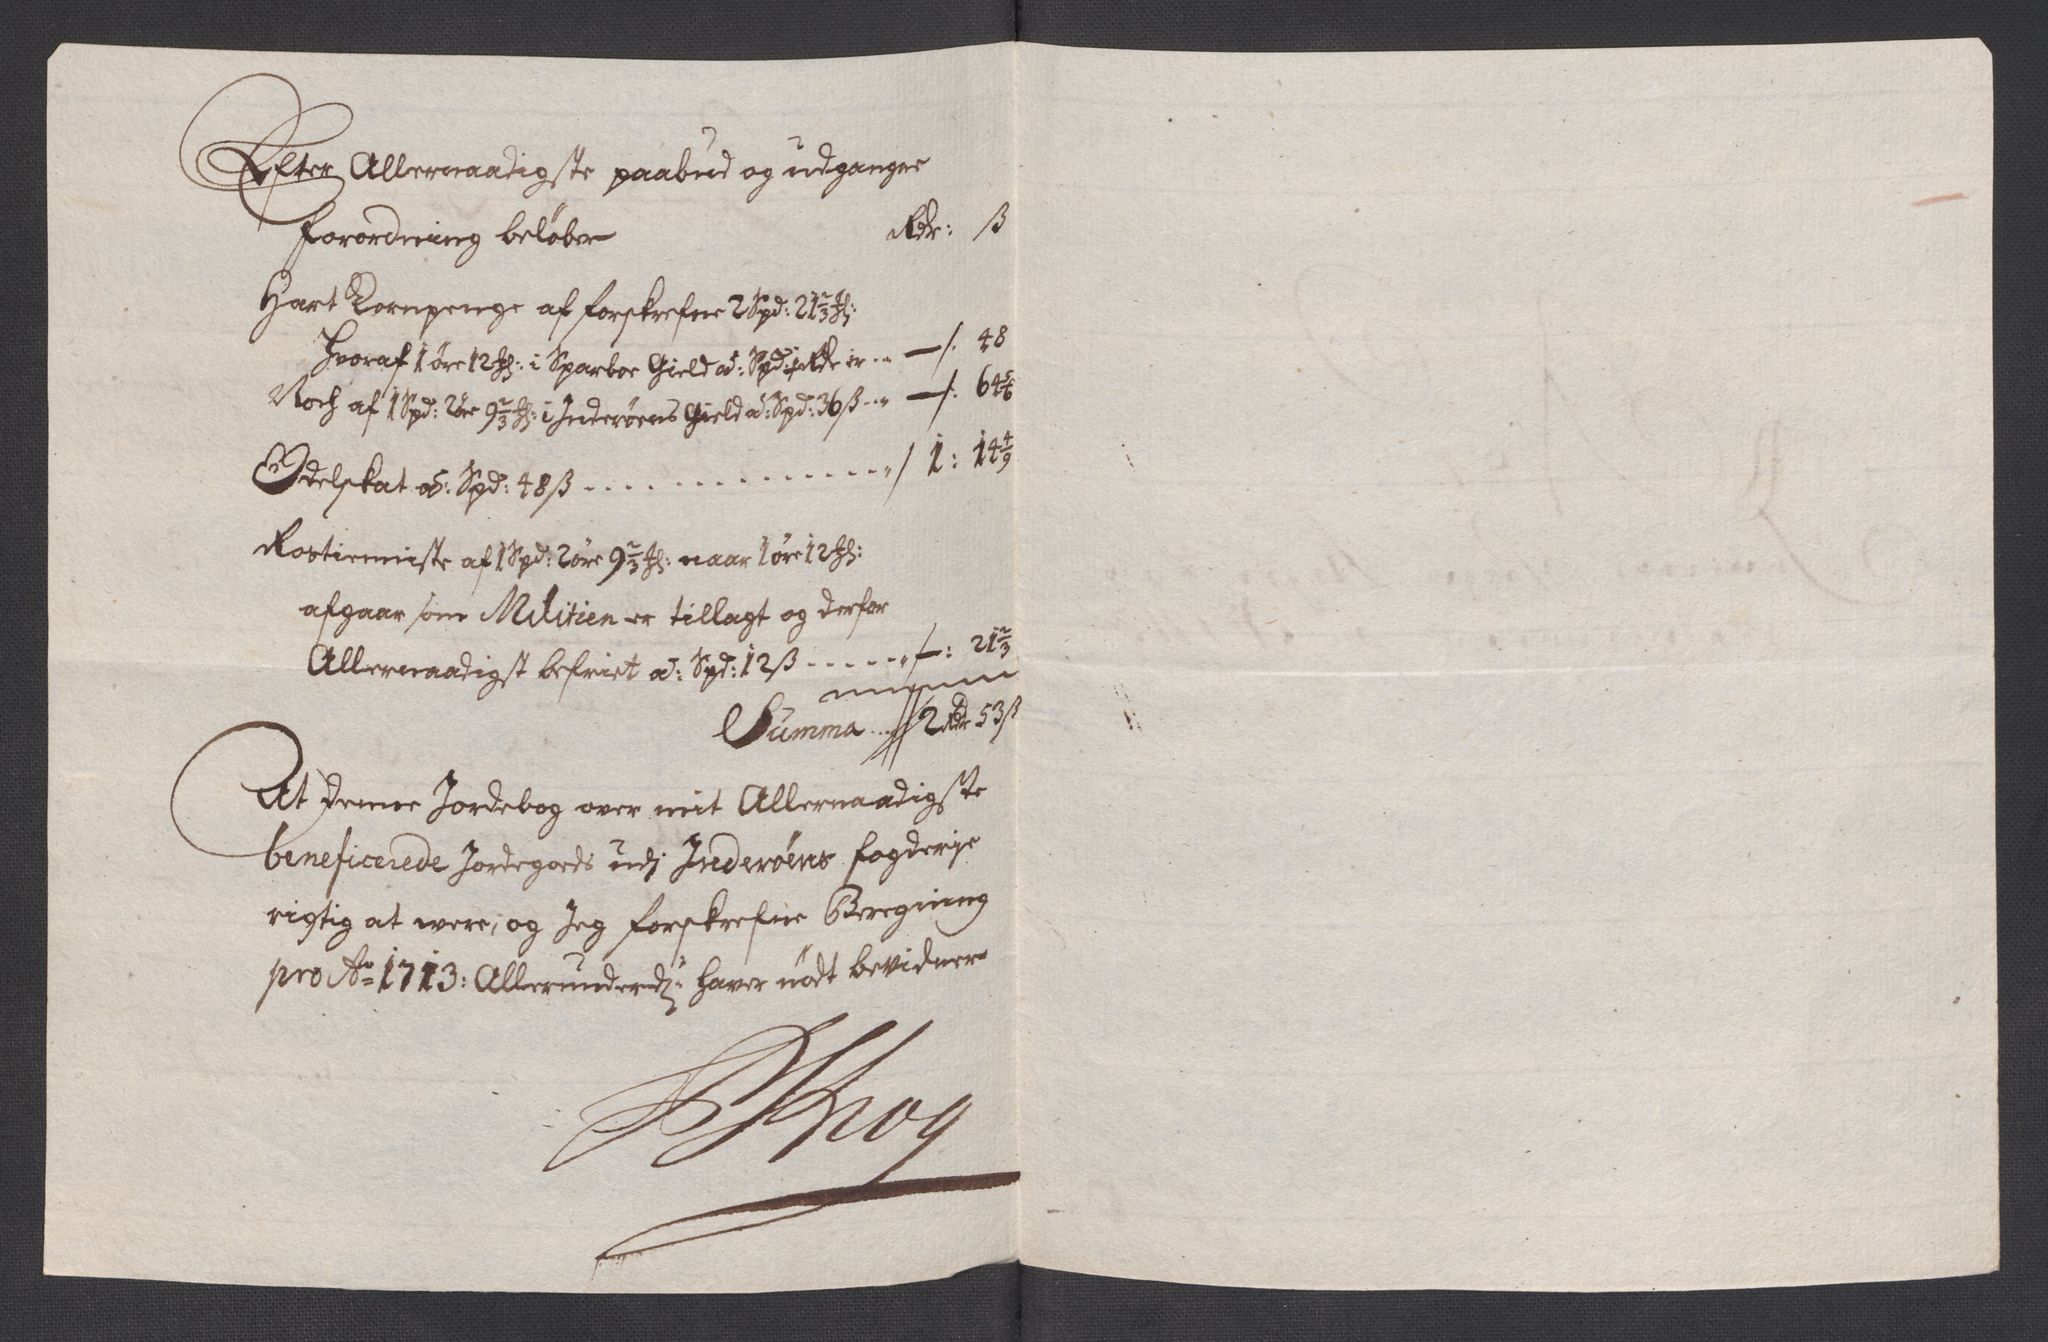 Efter Allernaadigste paabud og udgangne
forordning beløber Rdr: ß
Hart Kornpenge af forskrefne 2 Spd: 21 2/3 ℔:
Hvoraf 1 øre 12 ℔: i Sparboe Gield ad: Spd: 1 Rdr er ... — /: 48
Noch af 1 Spd: 2 øre 9 2/3 ℔: i Inderøens Gield ad: Spd: 36 ß ... — /: 64 5/6
Odelskat ad: Spd: 48 ß ............... / 1: 14 4/9
Rostieniste af 1 Spd: 2 øre 9 2/3 ℔: naar 1 øre 12 ℔:
afgaar som Militien er tillagt og derfor
Allernaadigst befriet ad: Spd: 12 ß ...... —: 21 2/3
Summa ... // 2 Rdr 53 ß
At denne Jordebog over mit Allernaadigste
beneficerede Jordegoeds udj Inderøens fogderje
rigtig at were, og Jeg forskrefne Beregning
pro Ao 1713: Allerunderd: haver nødt bevidner
Krog